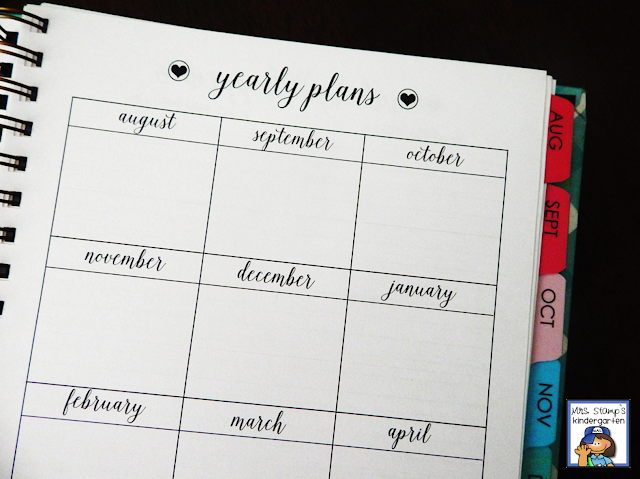 yearly plans
august september october
november december january
february march april
AUG
SEPT
OCT
NOV
Mrs. Stamp's
kindergarten